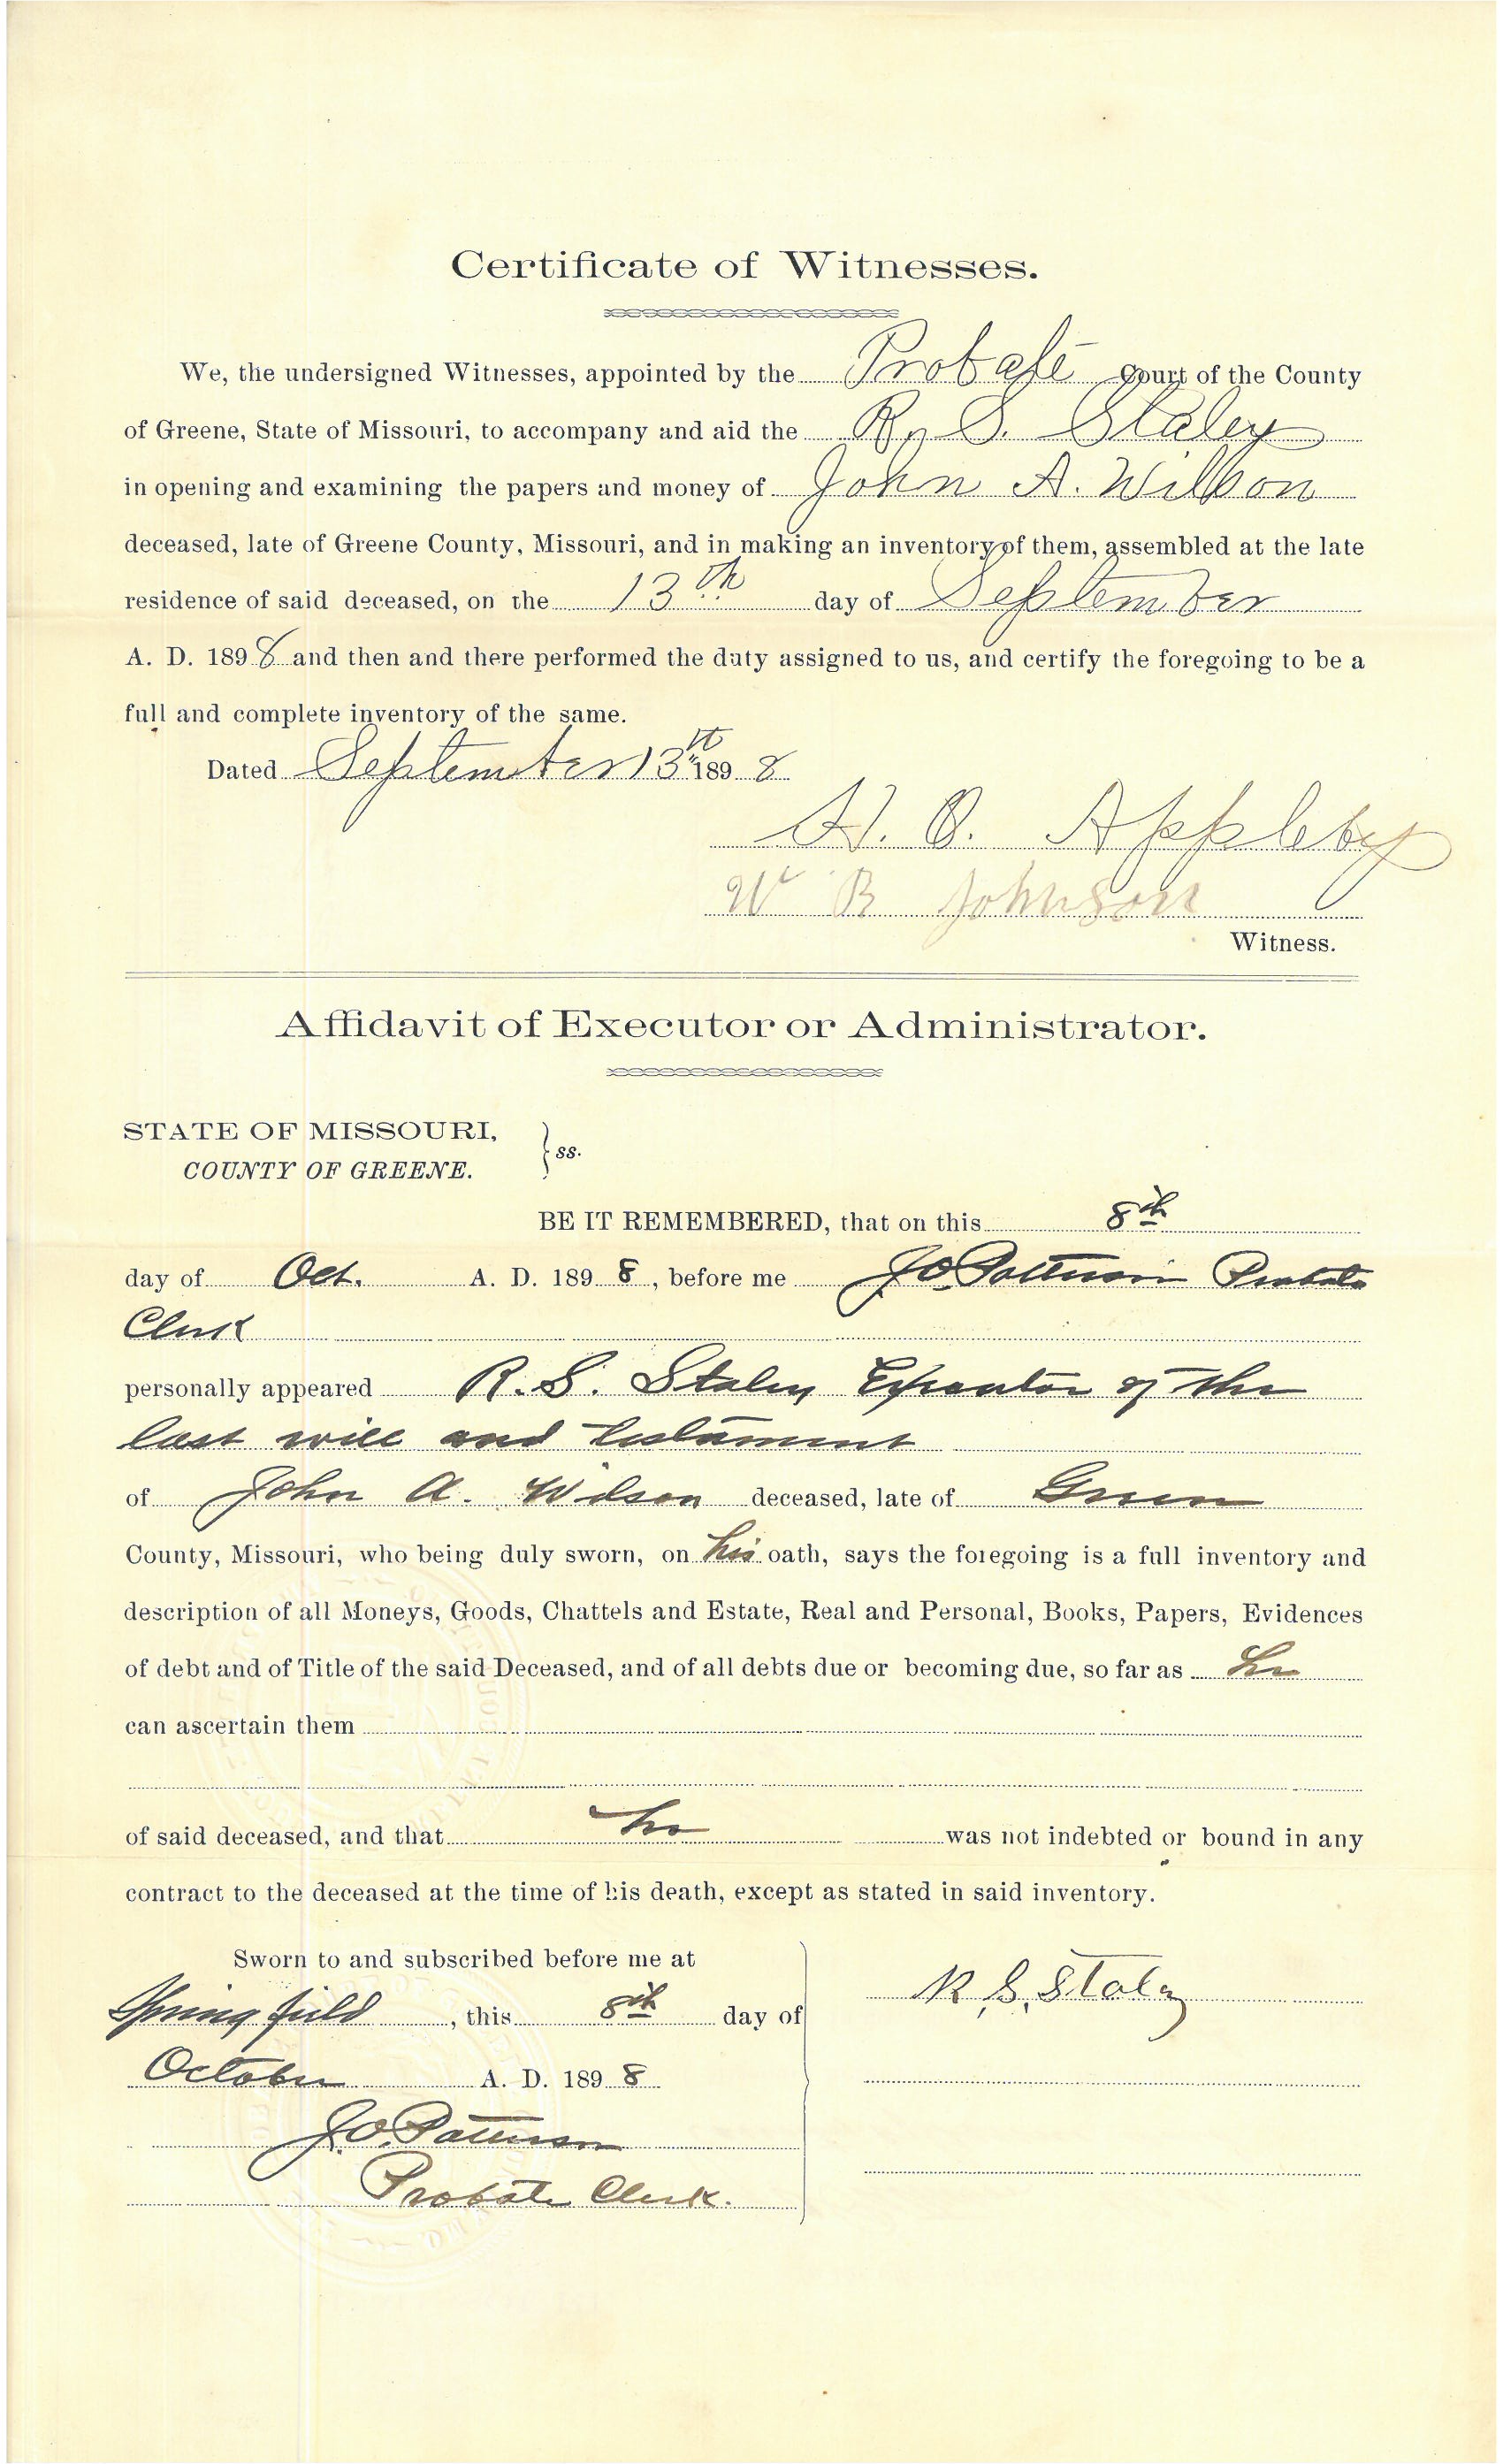 Certificate of Witnesses.
We, the undersigned Witnesses, appointed by the Probate Court of the County
of Greene, State of Missouri, to accompany and aid the R. S. Staley
in opening and examining the papers and money of John A. Wilson
deceased, late of Greene County, Missouri, and in making an inventory of them, assembled at the late
residence of said deceased, on the 13th day of September
A. D. 1898 and then and there performed the duty assigned to us, and certify the foregoing to be a
full and complete inventory of the same.
Dated September 13th 1898
H. O. Appleby
W B Johnson
Witness.
Affidavit of Executor or Administrator.
STATE OF MISSOURI,
COUNTY OF GREENE. } ss.
BE IT REMEMBERED, that on this 8th
day of Oct. A. D. 1898, before me J O Patterson Probate
Clerk
personally appeared R. S. Staley Executor of the
last will and testament
of John A. Wilson deceased, late of Green
County, Missouri, who being duly sworn, on his oath, says the foregoing is a full inventory and
description of all Moneys, Goods, Chattels and Estate, Real and Personal, Books, Papers, Evidences
of debt and of Title of the said Deceased, and of all debts due or becoming due, so far as he
can ascertain them
of said deceased, and that he was not indebted or bound in any
contract to the deceased at the time of his death, except as stated in said inventory.
Sworn to and subscribed before me at
Springfield, this 8th day of
October A. D. 1898
J. O. Patterson
Probate Clerk.
R. S. Staley